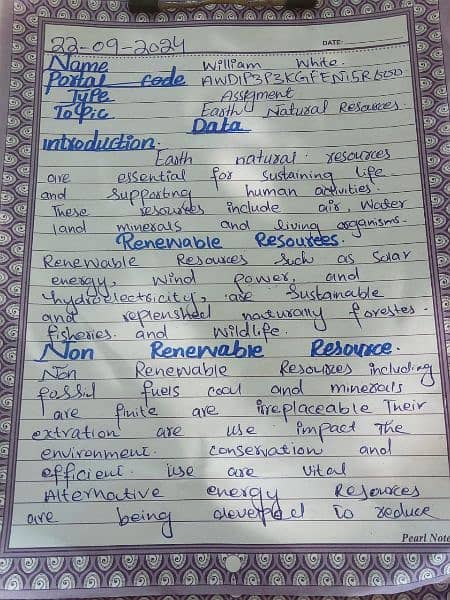 22-09-2024
DATE:
Name William White.
Portal code
Type Assigment
Topic Earth Natural Resources.
Data
introduction.
Earth natural resources
are essential for sustaining life.
and supporting human activities.
These resources include air, water
land minerals and living organisms.
Renewable Resources.
Renewable Resources such as solar
energy, wind power, and
hydroelectricity, are sustainable
and replenshed naturally forestes.
fisheries. and wildlife.
Non Renewable Resource.
Non Renewable Resources including
fossil fuels coal and minerals
are finite are irreplaceable Their
extration are use impact The
environment. conservation and
efficient. use are vital
Alternative energy Resources
are being developed To reduce
Pearl Note